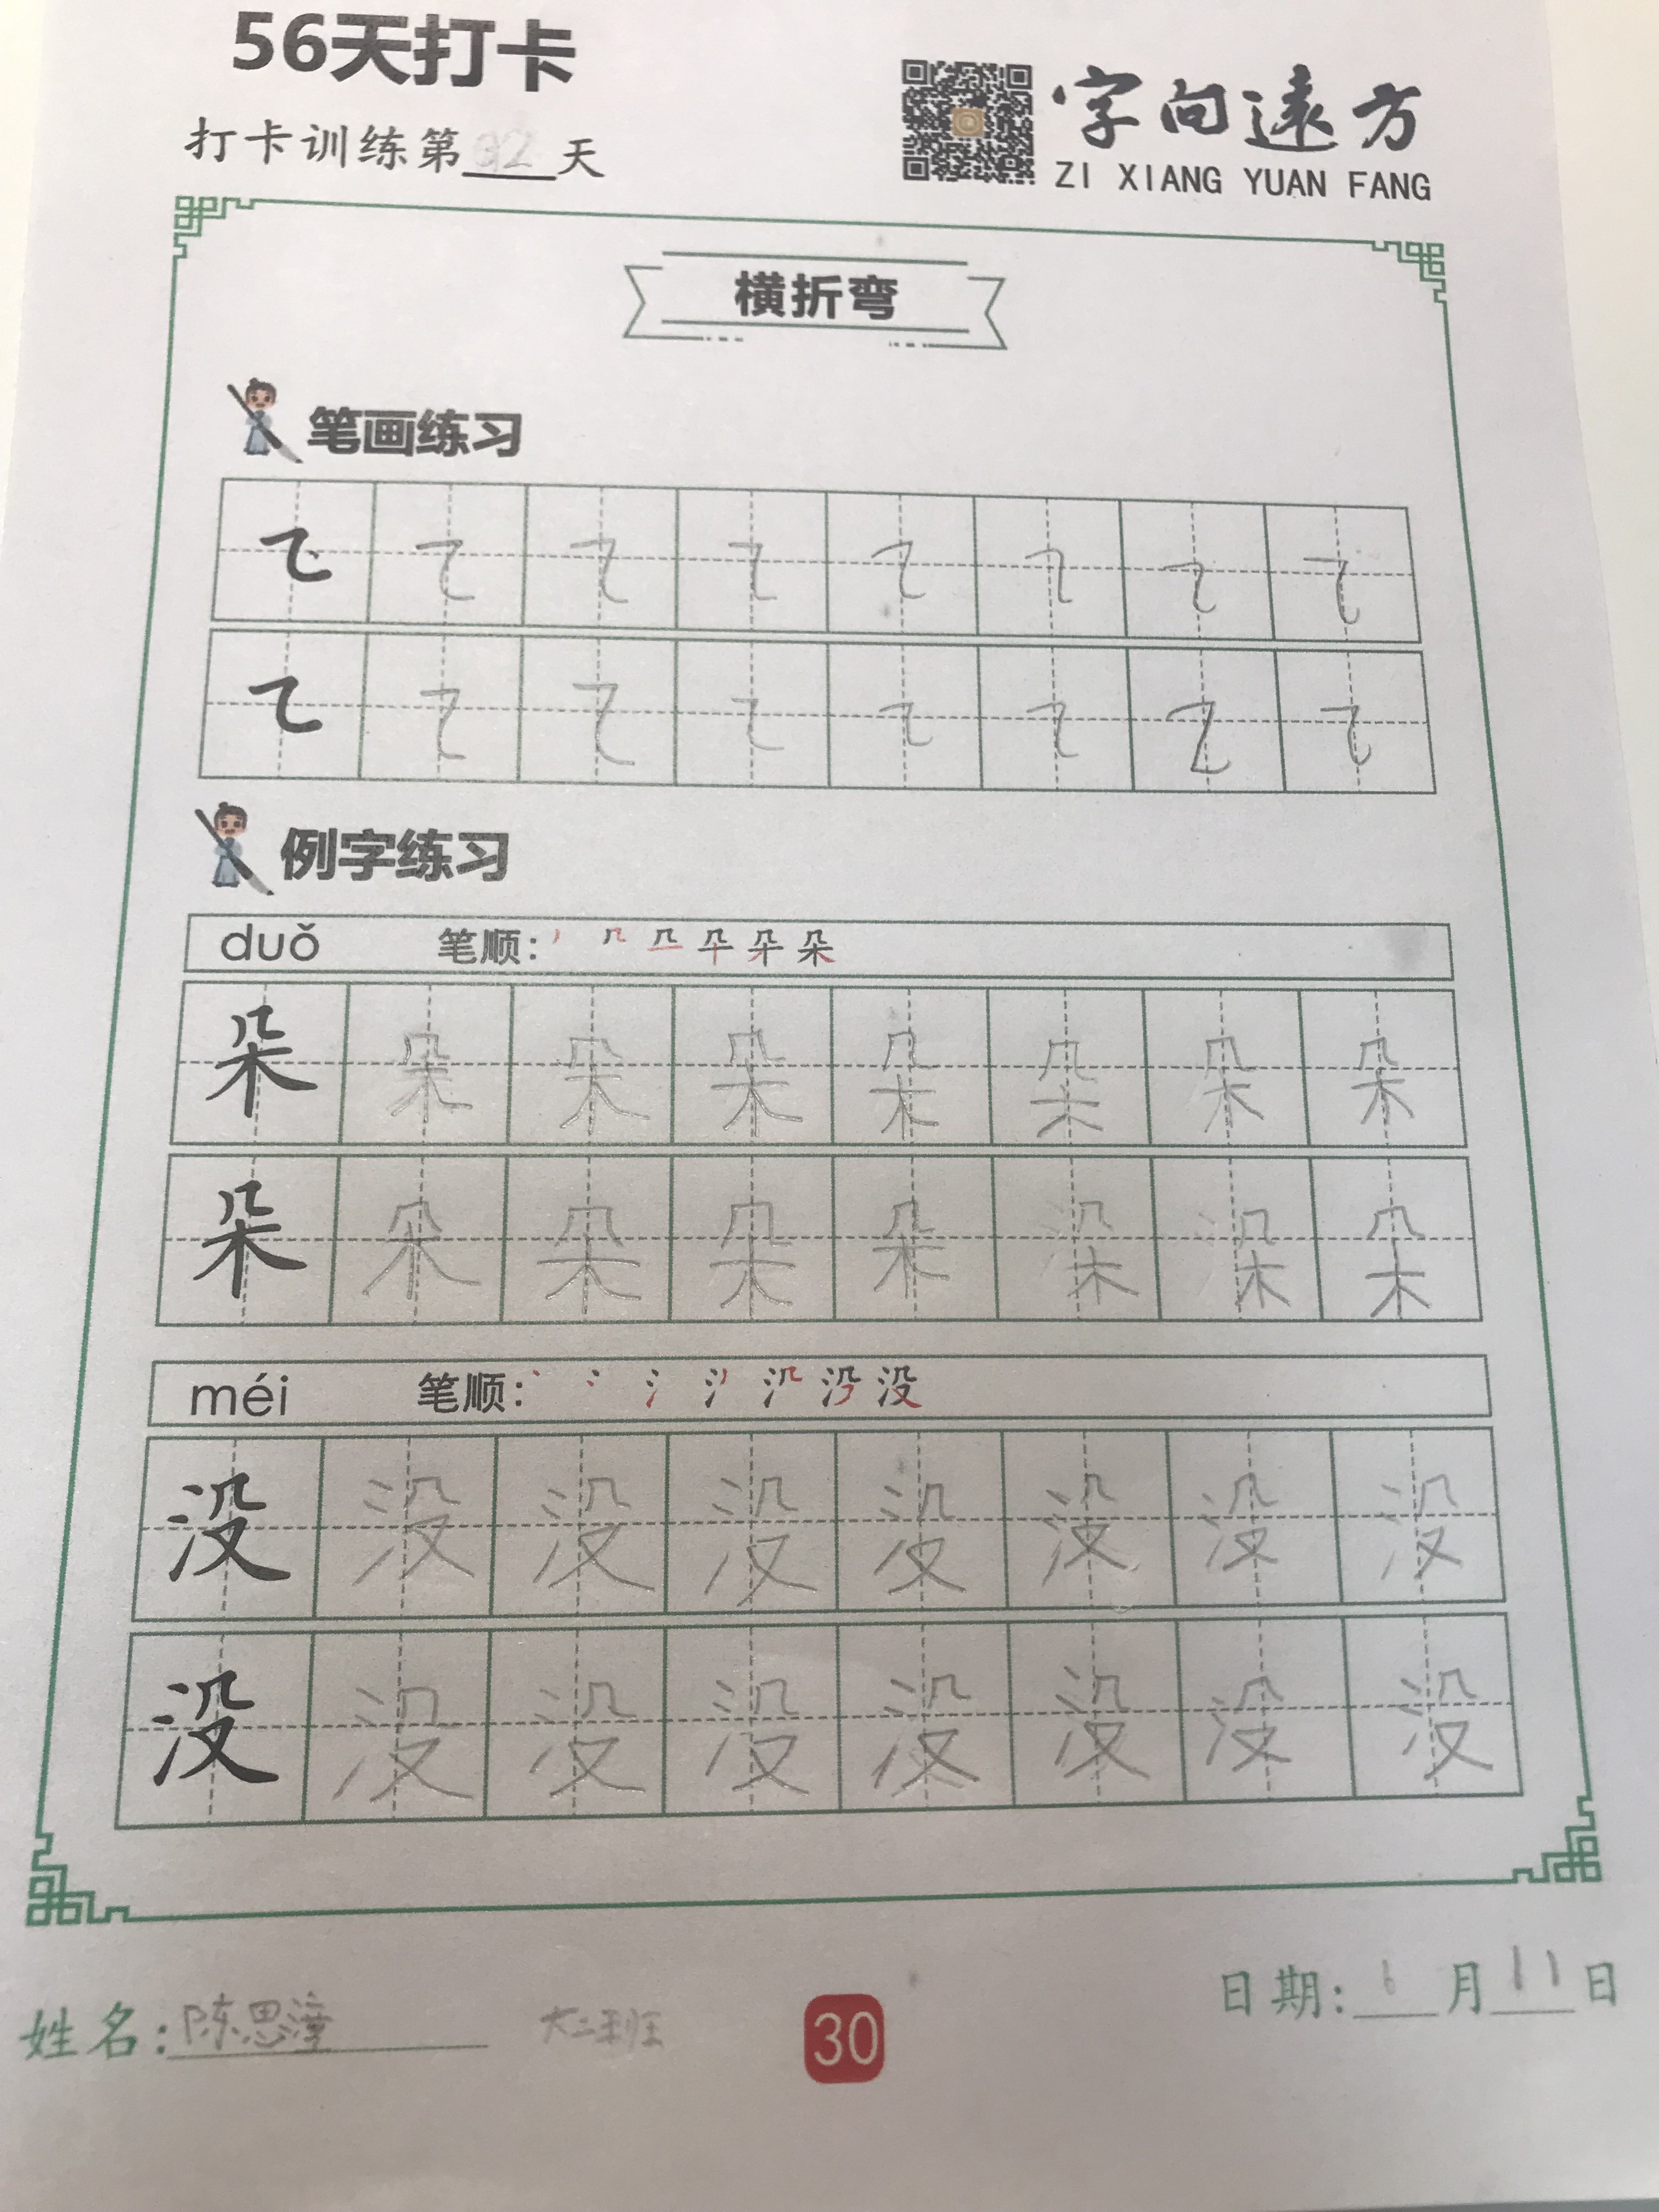 56天打卡
打卡训练第32天
字向遠方
ZI XIANG YUAN FANG
横折弯
笔画练习
例字练习
duǒ 笔顺:
朵 朵 朵 朵 朵 朵 朵 朵
朵 朵 朵 朵 朵 朵 朵 朵
méi 笔顺:
没 没 没 没 没 没 没 没
没 没 没 没 没 没 没 没
姓名:陈思潼 大二班
30
日期:6月11日